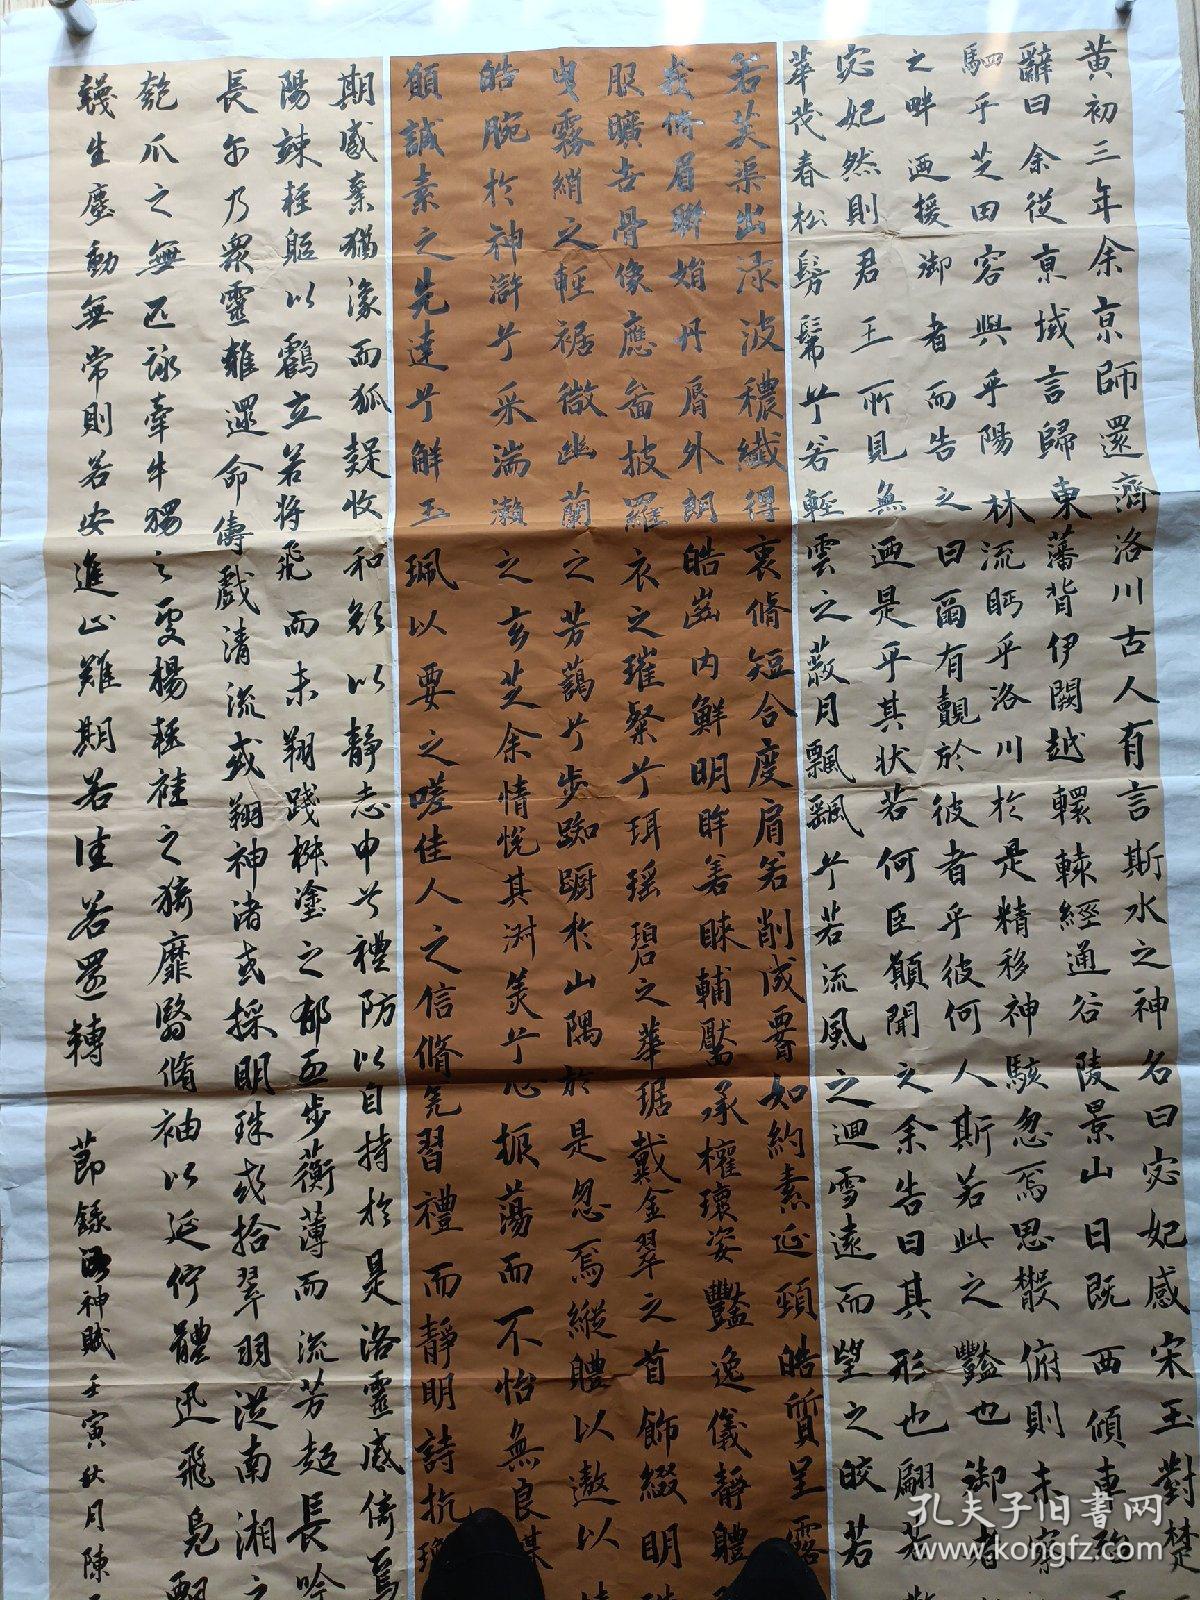 黄初三年余京師還濟洛川古人有言斯水之神名曰宓妃感宋玉對楚
辭曰余従京域言歸東藩背伊闕越轘轅經通谷陵景山日既西傾車殆
駟乎芝田容與乎陽林流眄乎洛川於是精移神駭忽焉思散俯則未察
之畔迺援御者而告之曰爾有覿於彼者乎彼何人斯若此之豔也御者
宓妃然則君王所見無迺是乎其状若何臣願聞之余告曰其形也翩若
華茂春松髣髴兮若輕雲之蔽月飄飄兮若流風之迴雪遠而望之皎若
若芙渠出渌波穠纖得衷脩短合度肩若削成要如約素延頸皓質呈露
峩脩眉聯娟丹脣外朗皓齒内鮮明眸善睞輔靨承權瓌姿豔逸儀靜體
服曠古骨像應啚披羅衣之璀粲兮珥瑶碧之華琚戴金翠之首飾綴明
曳霧綃之輕裾微幽蘭之芳藹兮步踟蹰於山隅於是忽焉縱體以遨以
皓腕於神滸兮采湍瀨之玄芝余情悦其淑羙兮心振蕩而不怡無良媒
願誠素之先達兮解玉珮以要之嗟佳人之信脩羌習禮而靜明詩抗瓊
期感棄猶潒而狐疑收和顔以静志申兮禮防以自持於是洛靈感倚焉
陽竦輕軀以鶴立若将飛而未翔踐椒塗之郁烈步蘅薄而流芳超長吟
長尓乃衆靈雜遝命儔戲清流或翔神渚或採明珠或拾翠羽従南湘之
匏爪之無匹詠牽牛獨之處楊輕袿之猗靡翳脩袖以延佇體迅飛鳧
韈生塵動無常則若安進止難期若往若還轉 節録洛神賦 壬寅秋月陳
孔夫子旧書网
www.kongfz.com